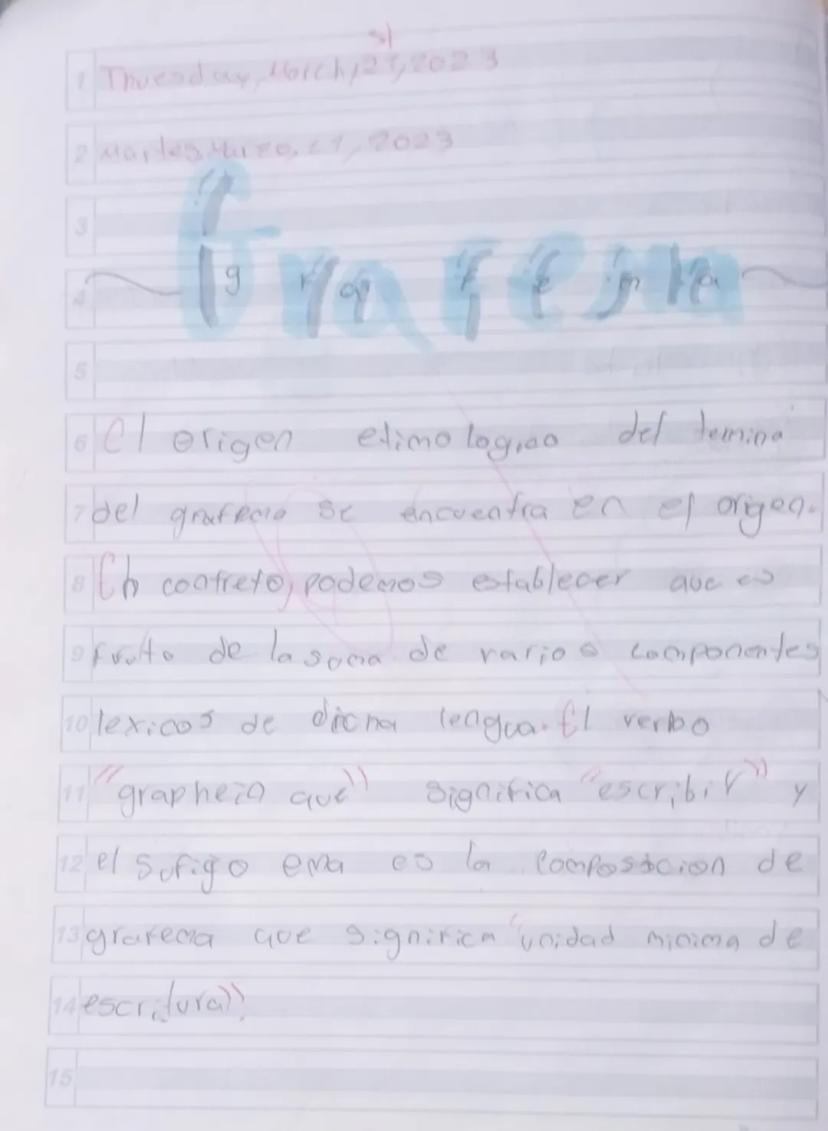 Thuesday, March, 21, 2023
st
Martes, Marzo, 21, 2023
Grafema
g r a f e m a
El origen etimologico del termino
del grafema se encuentra en el origen.
En contreto, podemos establecer que es
fruto de la soma de varios componentes
lexicos de dicha lengua. El verbo
"graphein que" significa "escribir" y
el sufigo ema es la composicion de
grafema que significa "unidad minima de
escritura"
1
2
3
4
5
6
7
8
9
10
11
12
13
14
15